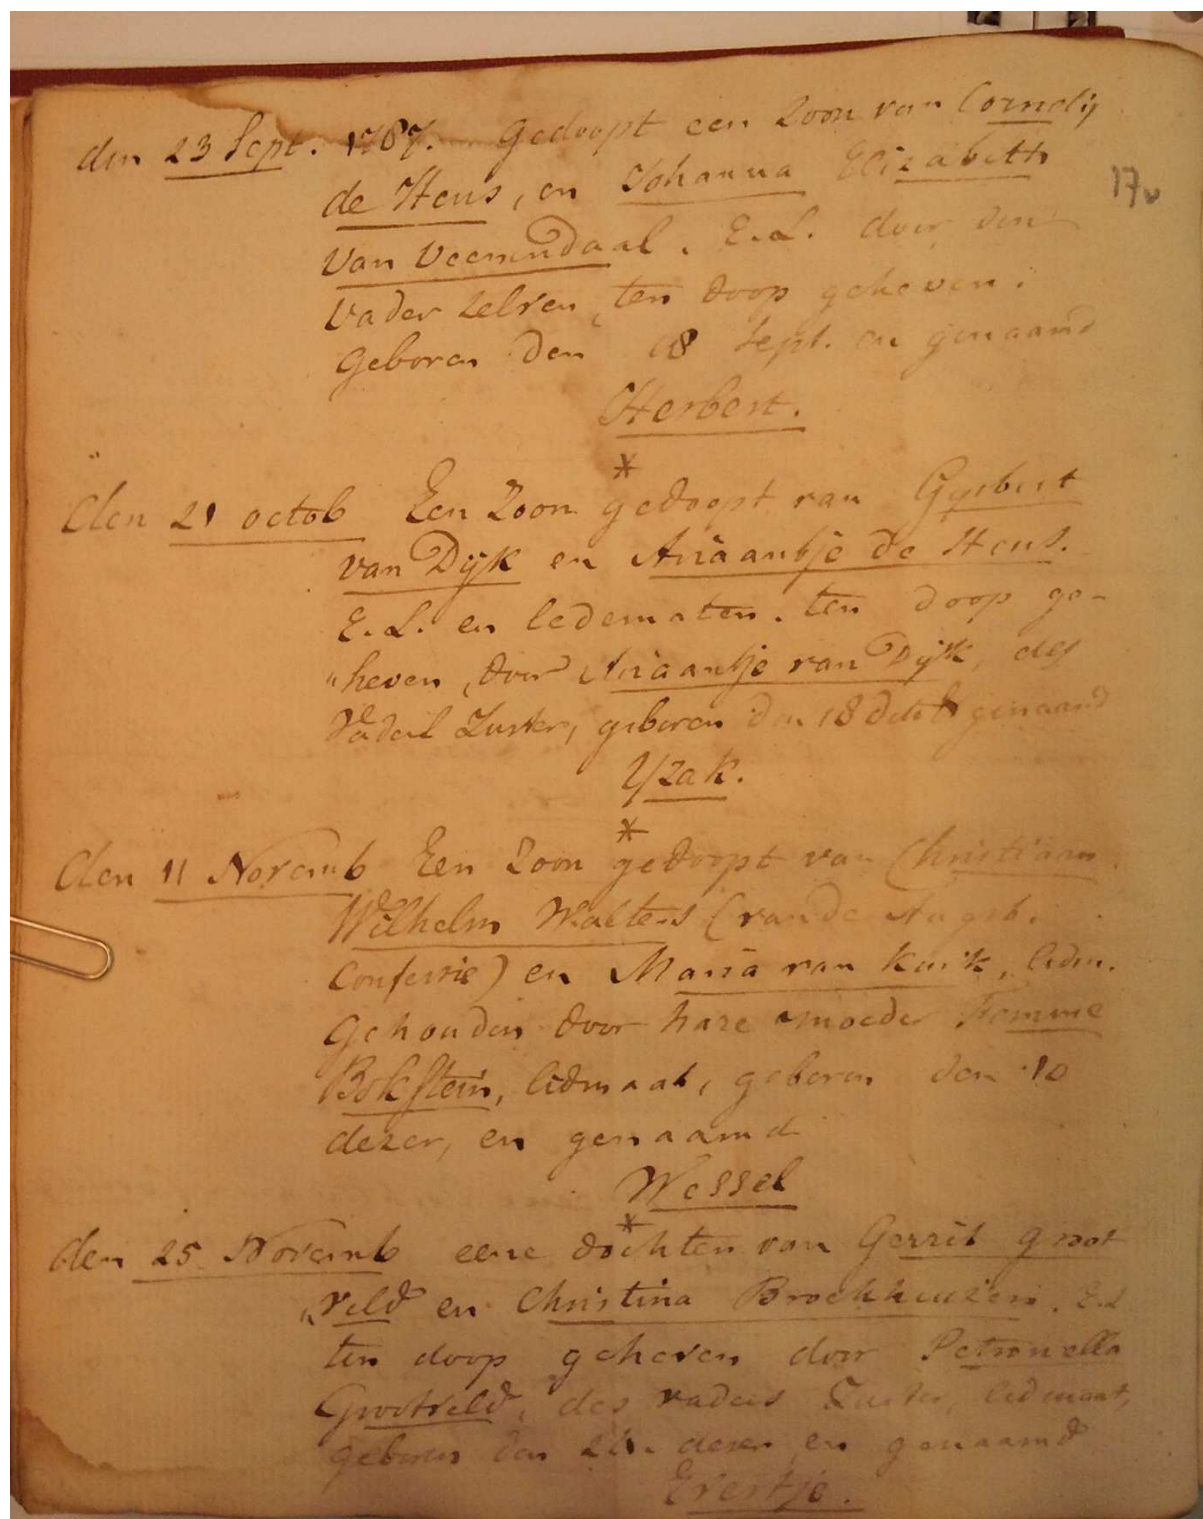 den 23 Sept. 1787. Gedoopt een Zoon van Cornelis
de Heus, en Johanna Elizabeth
17v
van Veenendaal. E.L. door den
Vader Zelven ten doop geheven.
Geboren den 18 Sept. en genaamd
Herbert.
*
Den 21 octob Een Zoon gedoopt van Gysbert
van Dijk en Ariaantje de Heus.
E.L. en ledematen. ten doop ge-
"heven, door Ariaantje van Dijk, des
Vaders Zuster, geboren den 18 genaamd
Yzak.
*
Den 11 Novemb Een Zoon gedoopt van Christiaan
Wilhelm Walters (van de Augsb.
Confessie) en Maria van Kuik, lidm.
Gehouden door hare moeder Femme
Bokstein, lidmaat, geboren den 10
dezer, en genaamd
Wessel
*
den 25 Novemb eene dochter van Gerrit groot
"veld en Christina Broekhuizen. E.L
ten doop geheven door Petronella
Grootveld, des vaders Zuster, ledemaat,
geboren den dezer en genaamd
Evertje.